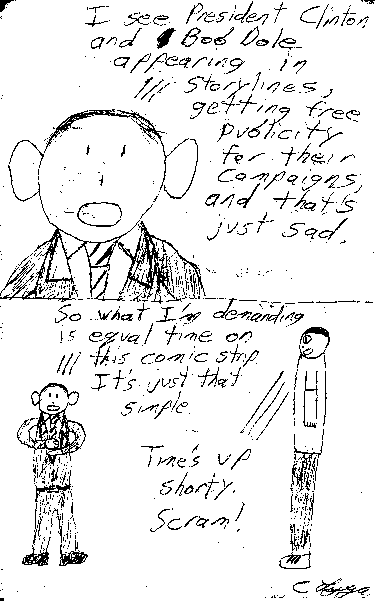 I see President Clinton
and Bob Dole
appearing in
storylines,
getting free
publicity
for their
campaigns,
and that's
just sad.
So what I'm demanding
is equal time on
this comic strip.
It's just that
simple.
Time's up
shorty.
Scram!
C